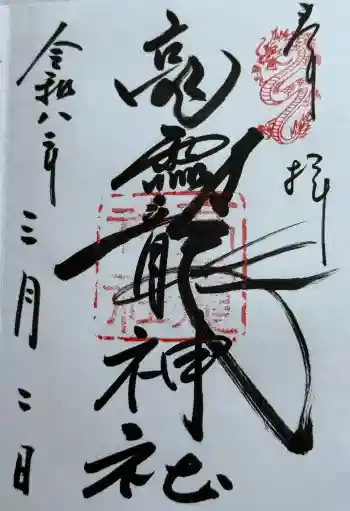 奉拝
高靈龍神社
令和八年
三月二日